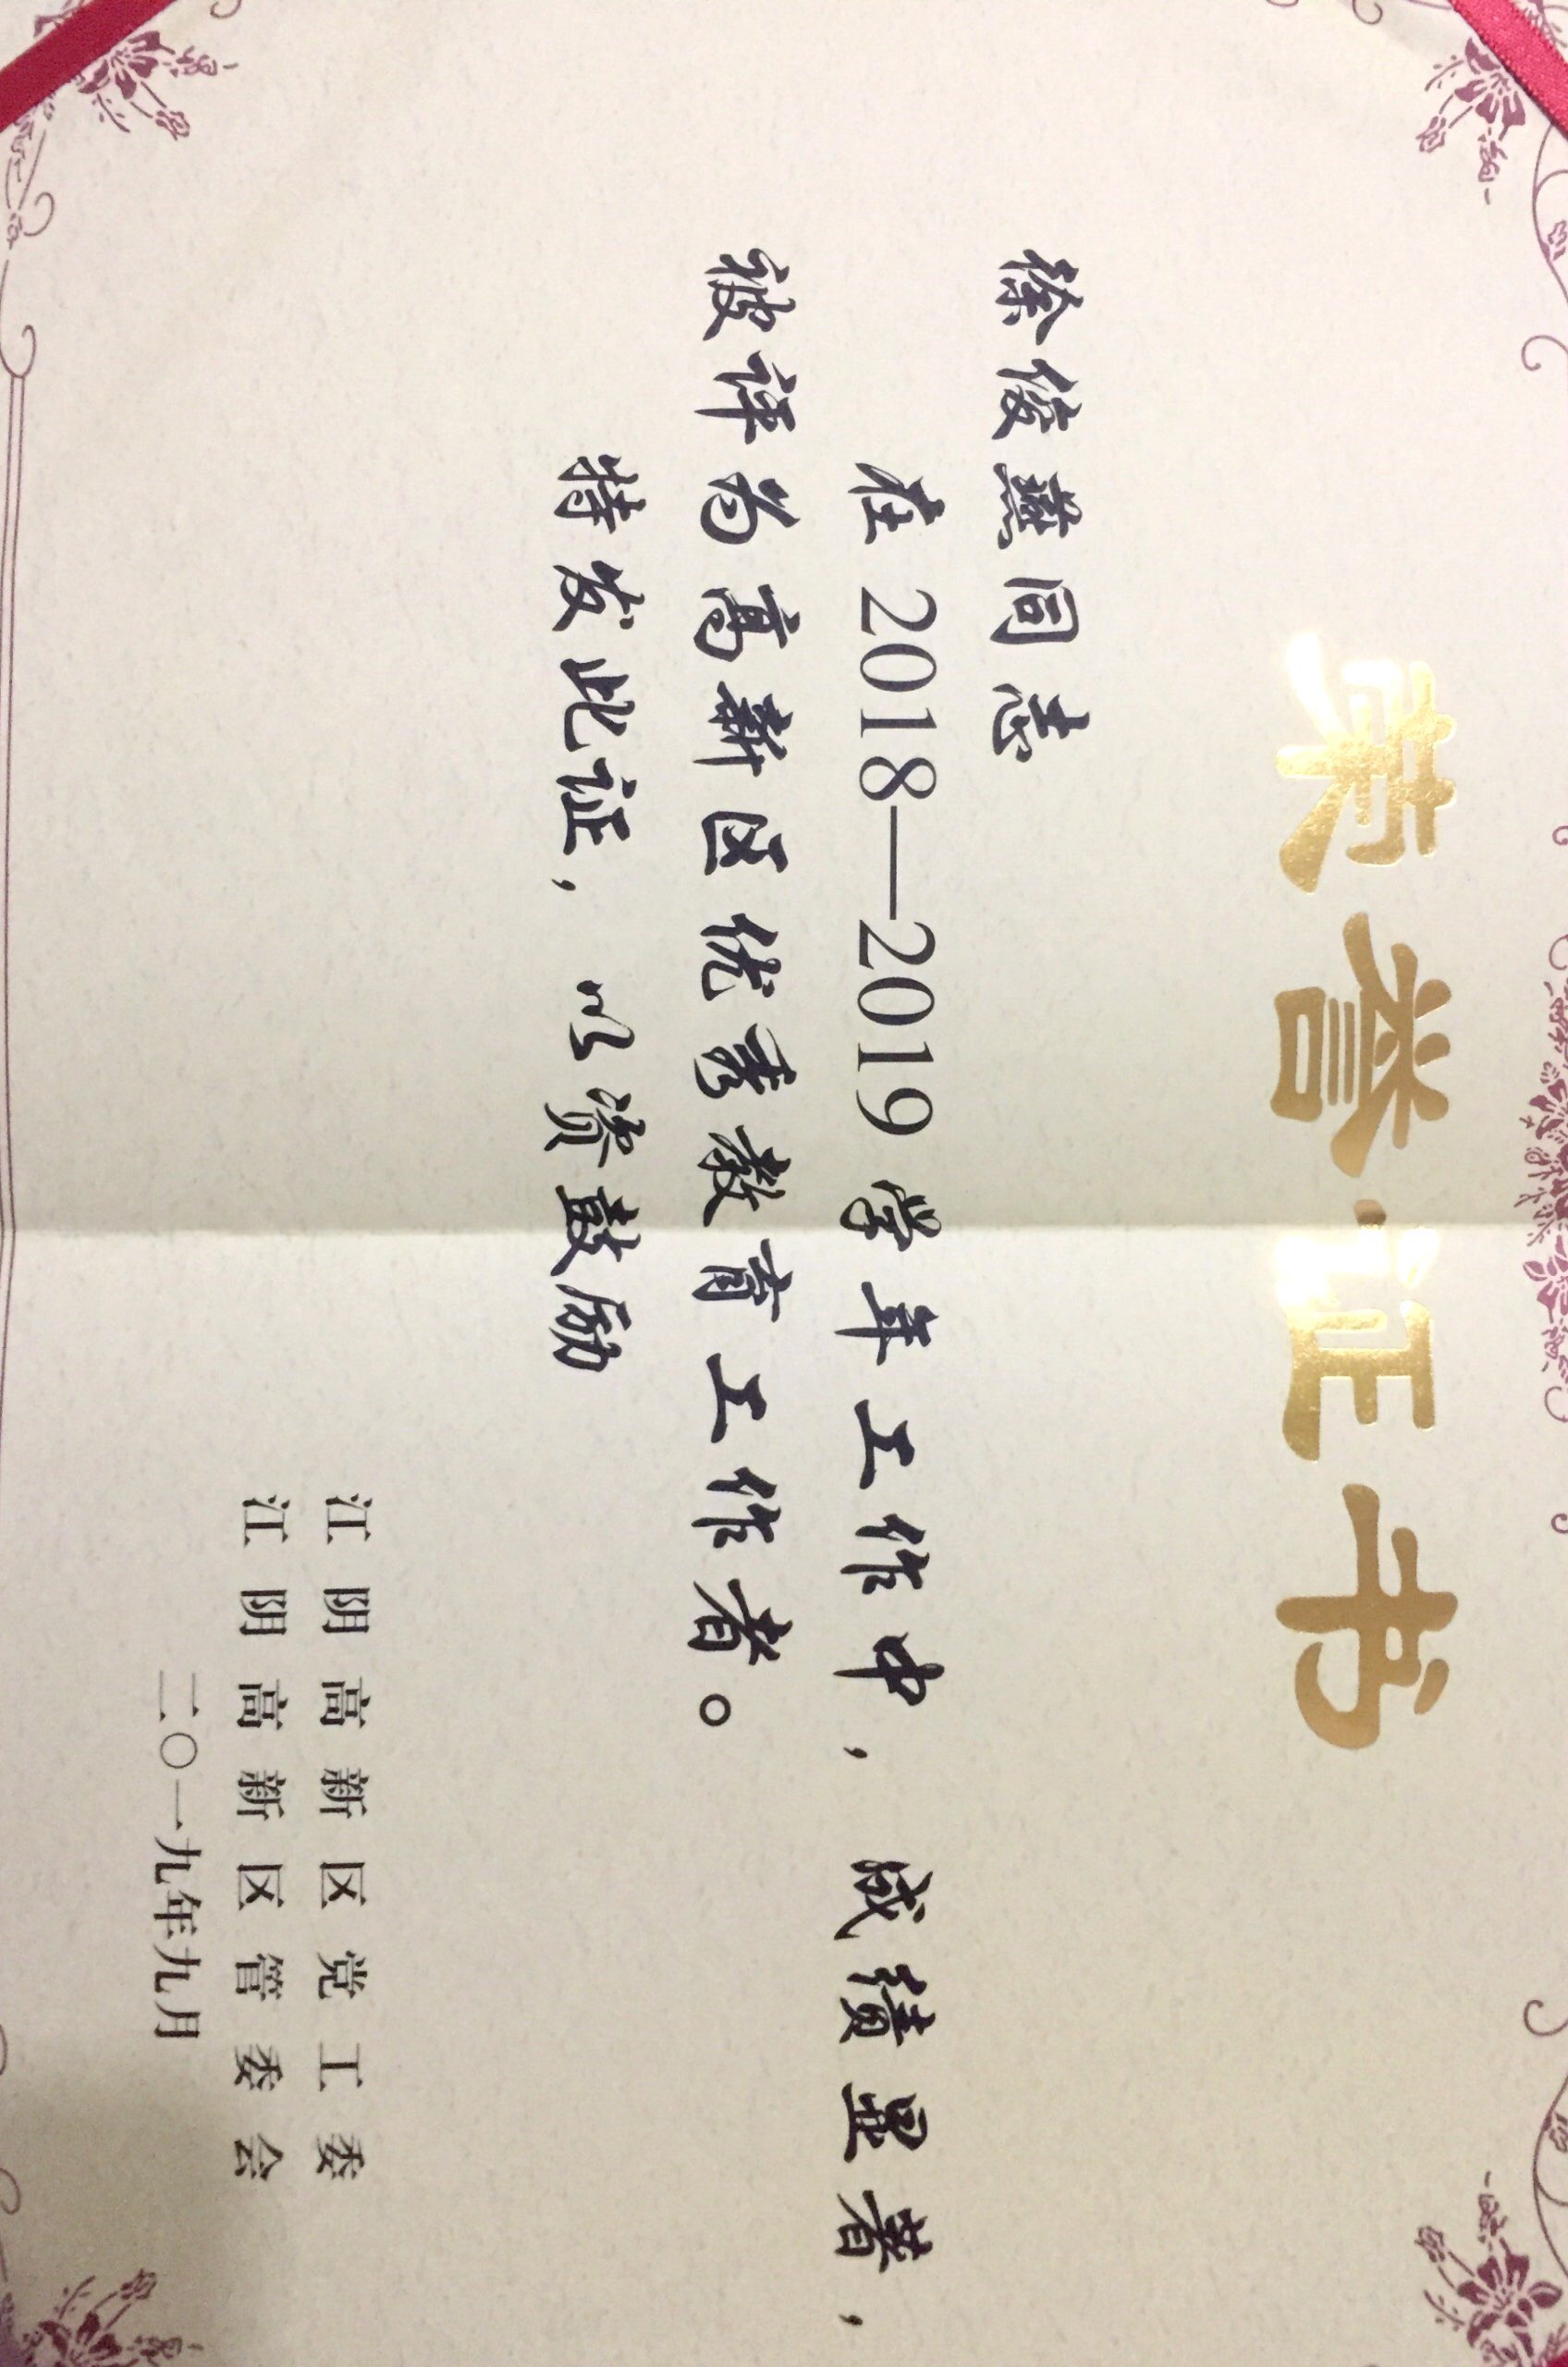 荣誉证书
徐俊燕同志
在 2018—2019 学年工作中，成绩显著，
被评为高新区优秀教育工作者。
特发此证，以资鼓励
江阴高新区党工委
江阴高新区管委会
二〇一九年九月